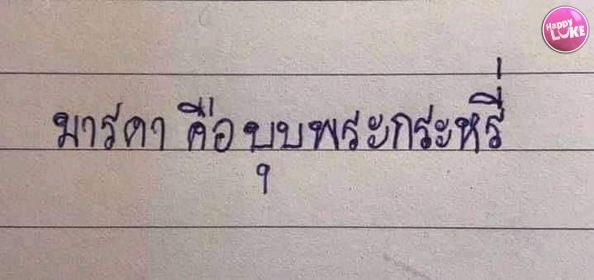 Happy
LUKE
มารดา คือ บุบพระกระหรี่